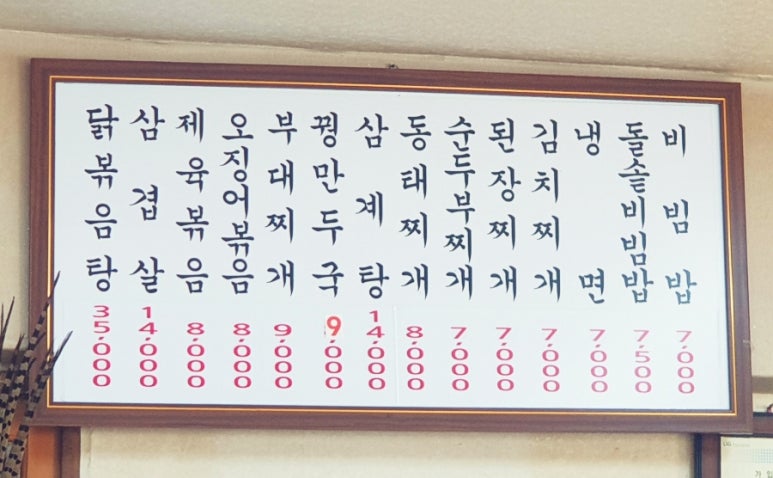 비빔밥 7,000
돌솔비빔밥 7,500
냉면 7,000
김치찌개 7,000
된장찌개 7,000
순두부찌개 7,000
동태찌개 8,000
삼계탕 14,000
꿩만두국 9,000
부대찌개 9,000
오징어볶음 8,000
제육볶음 8,000
삼겹살 14,000
닭볶음탕 35,000